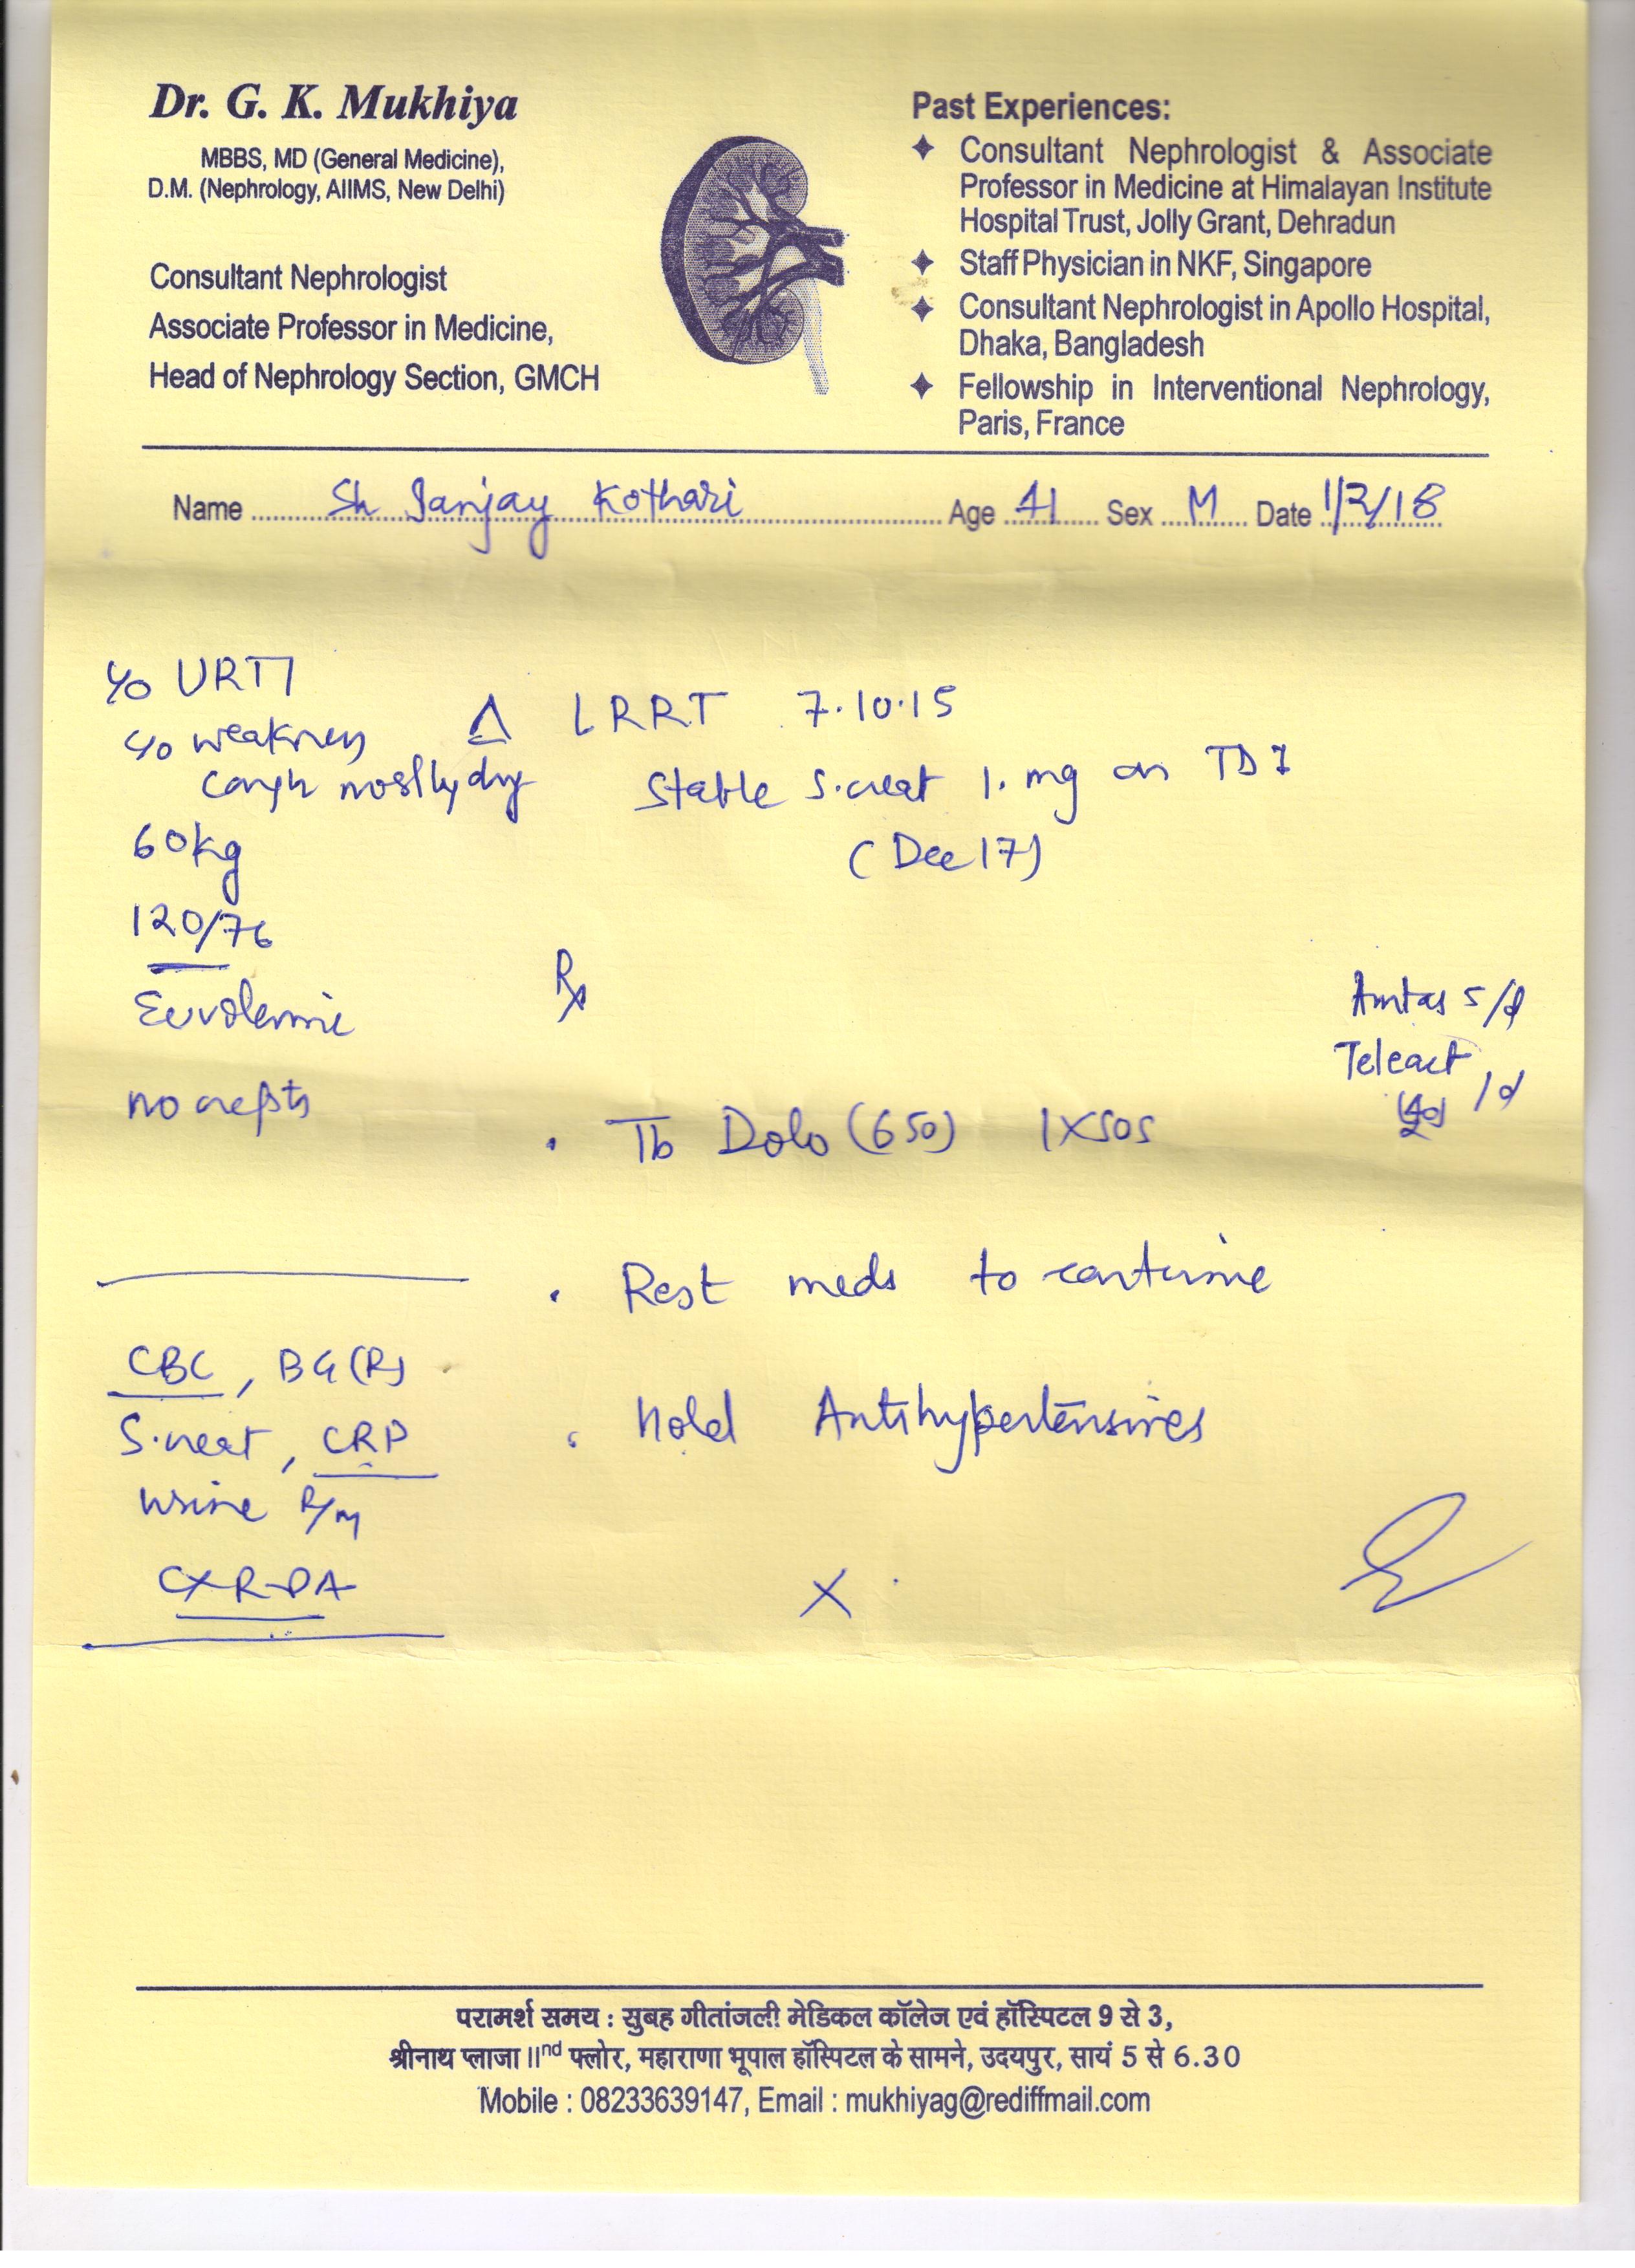 Dr. G. K. Mukhiya
MBBS, MD (General Medicine),
D.M. (Nephrology, AIIMS, New Delhi)
Consultant Nephrologist
Associate Professor in Medicine,
Head of Nephrology Section, GMCH
Past Experiences:
✦ Consultant Nephrologist & Associate
Professor in Medicine at Himalayan Institute
Hospital Trust, Jolly Grant, Dehradun
✦ Staff Physician in NKF, Singapore
✦ Consultant Nephrologist in Apollo Hospital,
Dhaka, Bangladesh
✦ Fellowship in Interventional Nephrology,
Paris, France
Name Sh Sanjay Kothari Age 41 Sex M Date 1/2/18
URTI
c/o weakness
cough mostly dry
60kg
120/76
Euvolemic
no crepts
CBC, BG(R)
S.creat, CRP
Urine R/M
CXR-PA
Δ LRRT 7.10.15
Stable S.creat 1. mg on TDI
(Dec 17)
Rx
Amtas 5/d
Teleact
(40) /d
. Tb Dolo (650) 1XSOS
. Rest meds to continue
. Hold Antihypertensives
X
परामर्श समय : सुबह गीतांजली मेडिकल कॉलेज एवं हॉस्पिटल 9 से 3,
श्रीनाथ प्लाजा IInd फ्लोर, महाराणा भूपाल हॉस्पिटल के सामने, उदयपुर, सायं 5 से 6.30
Mobile : 08233639147, Email : mukhiyag@rediffmail.com